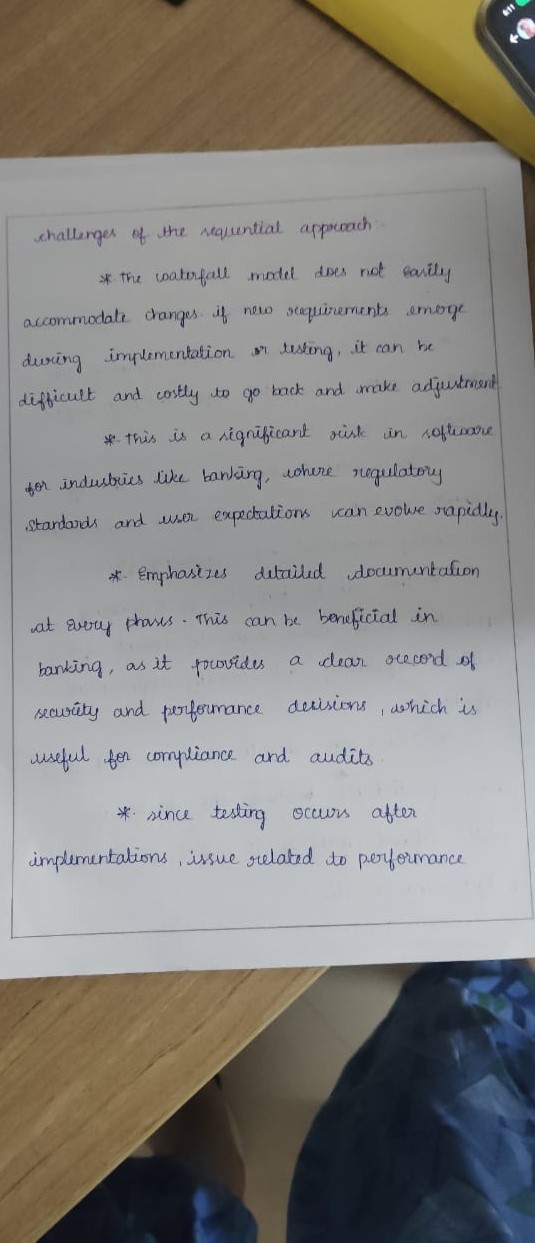 challenges of the sequential approach:
* The waterfall model does not easily
accommodate changes. if new requirements emerge
during implementation or testing, it can be
difficult and costly to go back and make adjustment.
* This is a significant risk in software
for industries like banking, where regulatory
standards and user expectations can evolve rapidly.
* Emphasizes detailed documentation
at every phases. This can be beneficial in
banking, as it provides a clear record of
security and performance decisions, which is
useful for compliance and audits.
* since testing occurs after
implementations, issue related to performance